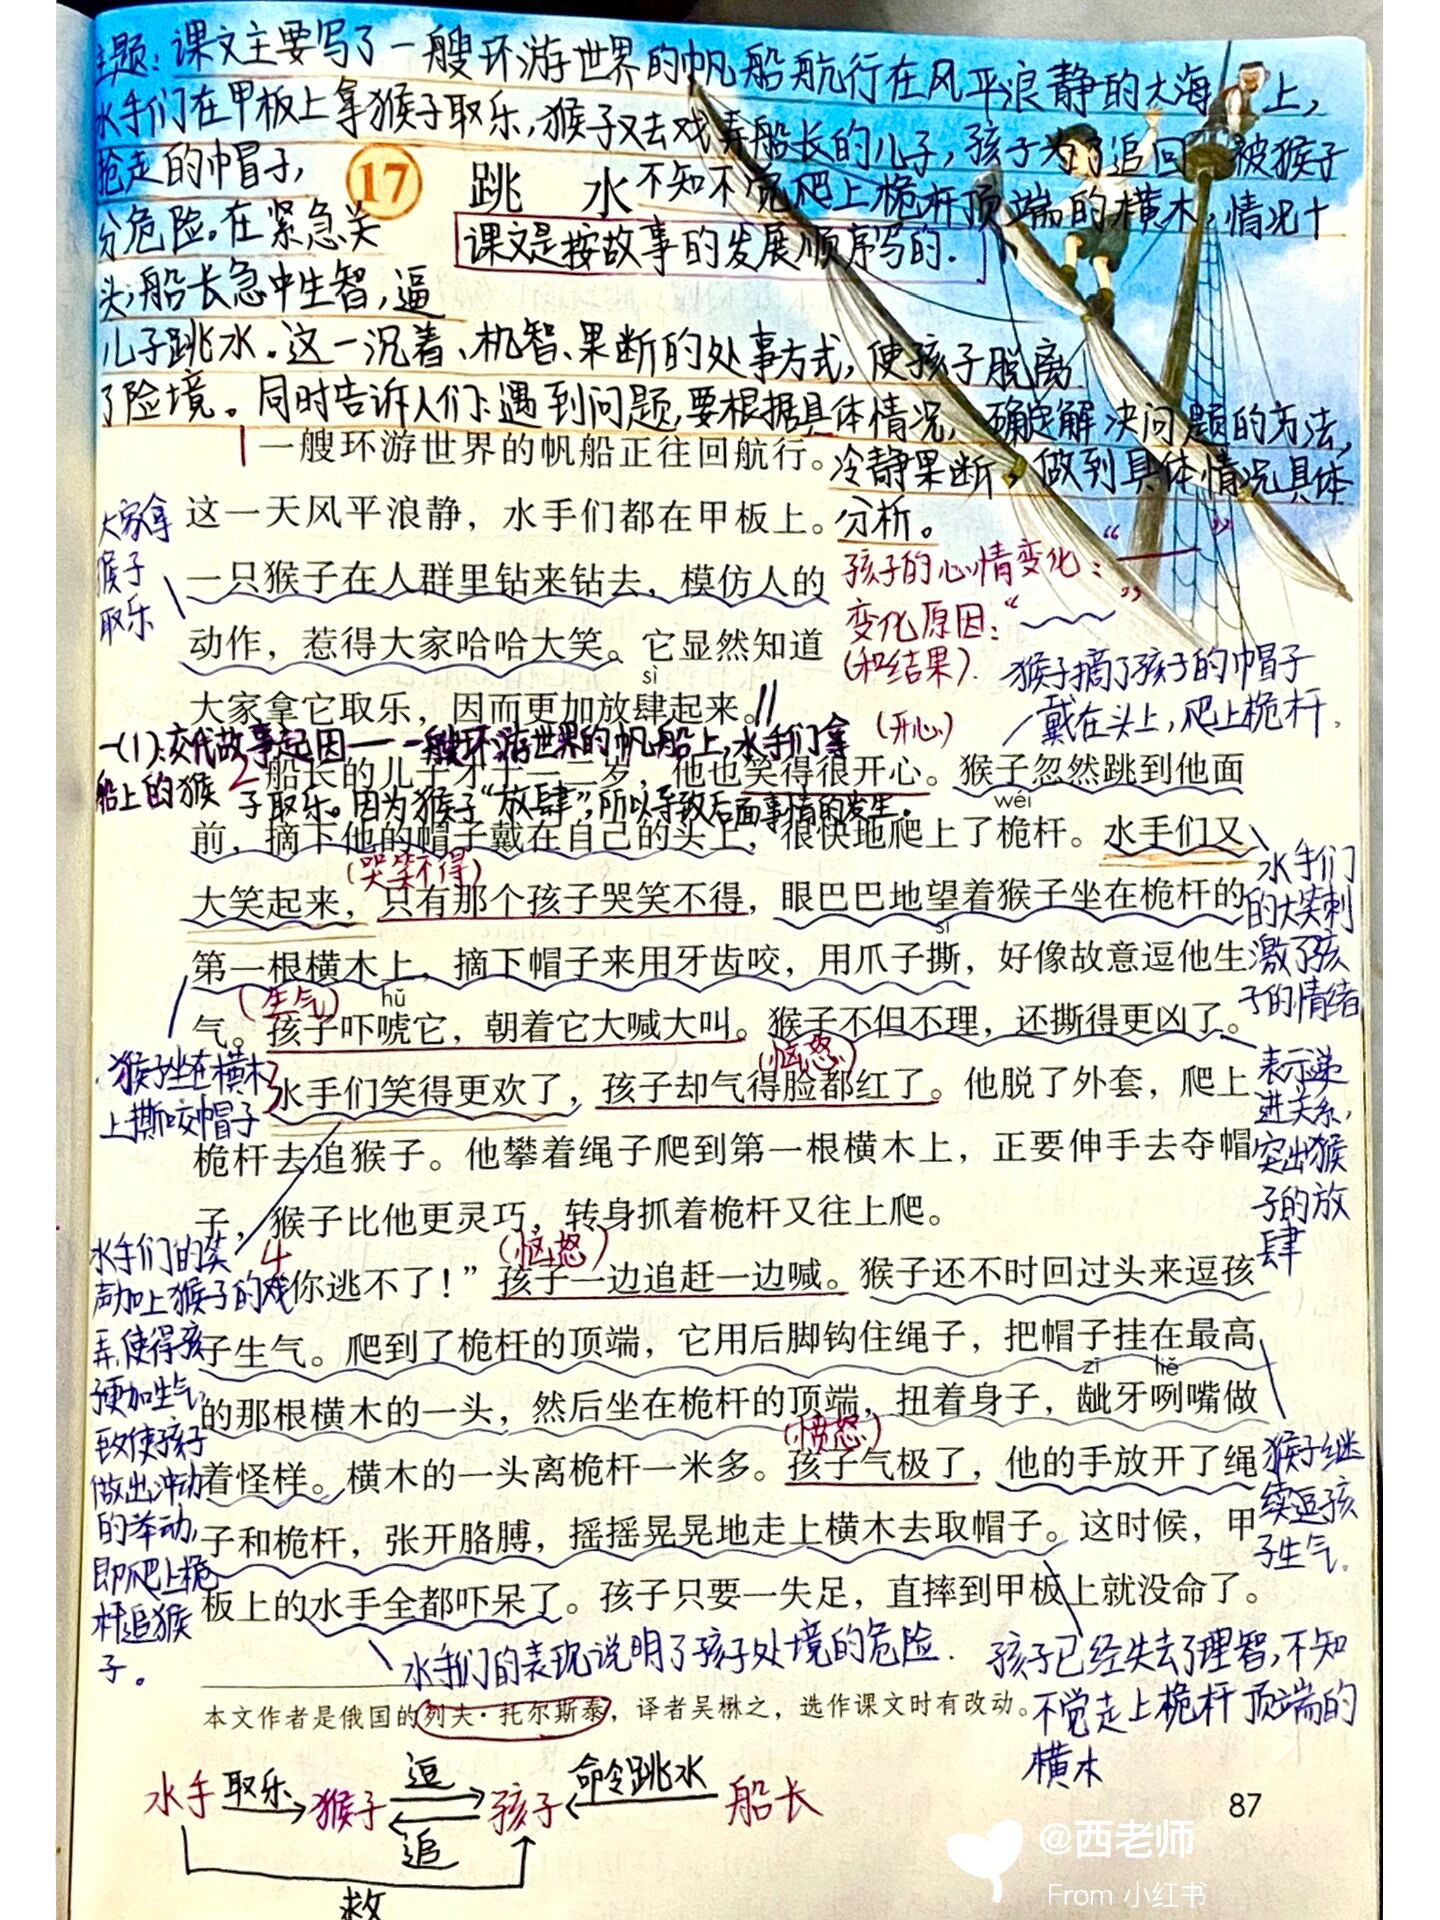 主题：课文主要写了一艘环游世界的帆船航行在风平浪静的大海上，
水手们在甲板上拿猴子取乐，猴子又去戏弄船长的儿子，孩子为了追回被猴子
抢走的巾冒子，
17 跳水
不知不觉爬上桅杆顶端的横木，情况十
分危险。在紧急关
课文是按故事的发展顺序写的．
头，船长急中生智，逼
儿子跳水。这一沉着、机智、果断的处事方式，使孩子脱离
了险境。同时告诉人们：遇到问题，要根据具体情况，确定解决问题的方法，
冷静果断，做到具体情况具体
分析。
1 一艘环游世界的帆船正往回航行。
这一天风平浪静，水手们都在甲板上。
一只猴子在人群里钻来钻去，模仿人的
动作，惹得大家哈哈大笑。它显然知道
sì
大家拿它取乐，因而更加放肆起来。//
大家拿
猴子
取乐
孩子的心情变化：“——”
变化原因：“ ”
(和结果)．
猴子摘了孩子的巾冒子
戴在头上，爬上桅杆．
一(1)：交代故事起因——一艘环游世界的帆船上，水手们拿
船上的猴子取乐。因为猴子“放肆”，所以导致后面事情的发生．
(开心)
2 船长的儿子才十一二岁，他也笑得很开心。猴子忽然跳到他面
wéi
前，摘下他的帽子戴在自己的头上，很快地爬上了桅杆。水手们又
(哭笑不得)
大笑起来，只有那个孩子哭笑不得，眼巴巴地望着猴子坐在桅杆的
sī
第一根横木上，摘下帽子来用牙齿咬，用爪子撕，好像故意逗他生
(生气) hǔ
气。孩子吓唬它，朝着它大喊大叫。猴子不但不理，还撕得更凶了。
(恼怒)
3 水手们笑得更欢了，孩子却气得脸都红了。他脱了外套，爬上
桅杆去追猴子。他攀着绳子爬到第一根横木上，正要伸手去夺帽
子，猴子比他更灵巧，转身抓着桅杆又往上爬。
(恼怒)
4 你逃不了！”孩子一边追赶一边喊。猴子还不时回过头来逗孩
子生气。爬到了桅杆的顶端，它用后脚钩住绳子，把帽子挂在最高
zī liě
的那根横木的一头，然后坐在桅杆的顶端，扭着身子，龇牙咧嘴做
(愤怒)
着怪样。横木的一头离桅杆一米多。孩子气极了，他的手放开了绳
子和桅杆，张开胳膊，摇摇晃晃地走上横木去取帽子。这时候，甲
板上的水手全都吓呆了。孩子只要一失足，直摔到甲板上就没命了。
水手们
的大笑刺
激了孩
子的情绪
表示递
进关系，
突出猴
子的放
肆
猴子坐在横木
上撕咬巾冒子
水手们的笑
声加上猴子的戏
弄，使得孩
子更加生气，
致使孩子
做出冲动
的举动，
即爬上桅
杆追猴
子。
猴子继
续逗孩
子生气．
水手们的表现说明了孩子处境的危险．
孩子已经失去了理智，不知
不觉走上桅杆顶端的
横木
本文作者是俄国的列夫·托尔斯泰，译者吴楙之，选作课文时有改动。
水手 取乐 猴子 逗 追 孩子 命令跳水 船长
救
87
@西老师
From 小红书